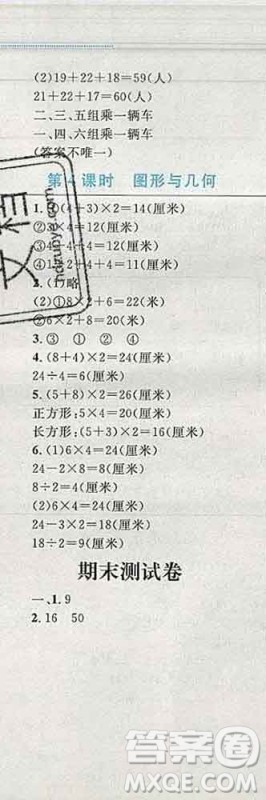 (2)19+22+18=59(人)
21+22+17=60(人)
二、三、五组乘一辆车
一、四、六组乘一辆车
(答案不唯一)
第4课时 图形与几何
1.①(4+3)×2=14(厘米)
②3×4=12(厘米)
4+4+4=12(厘米)
④1+2+5+4=12(厘米)
2.(1)略
(2)①8×2+6=22(厘米)
②6×2+8=20(厘米)
3.③ ① ② ④
4.(8+4)×2=24(厘米)
24÷4=6(厘米)
5.24-5×2=14(厘米)
正方形:5×4=20(厘米)
长方形:(5+3)×2=16(厘米)
6.(1)6×4=24(厘米)
24-2×8=8(厘米)
8÷2=4(厘米)
(2)6×4=24(厘米)
24-3×2=18(厘米)
18÷2=9(厘米)
期末测试卷
一、1.9
2.16 50
答案圈
MXQE.COM